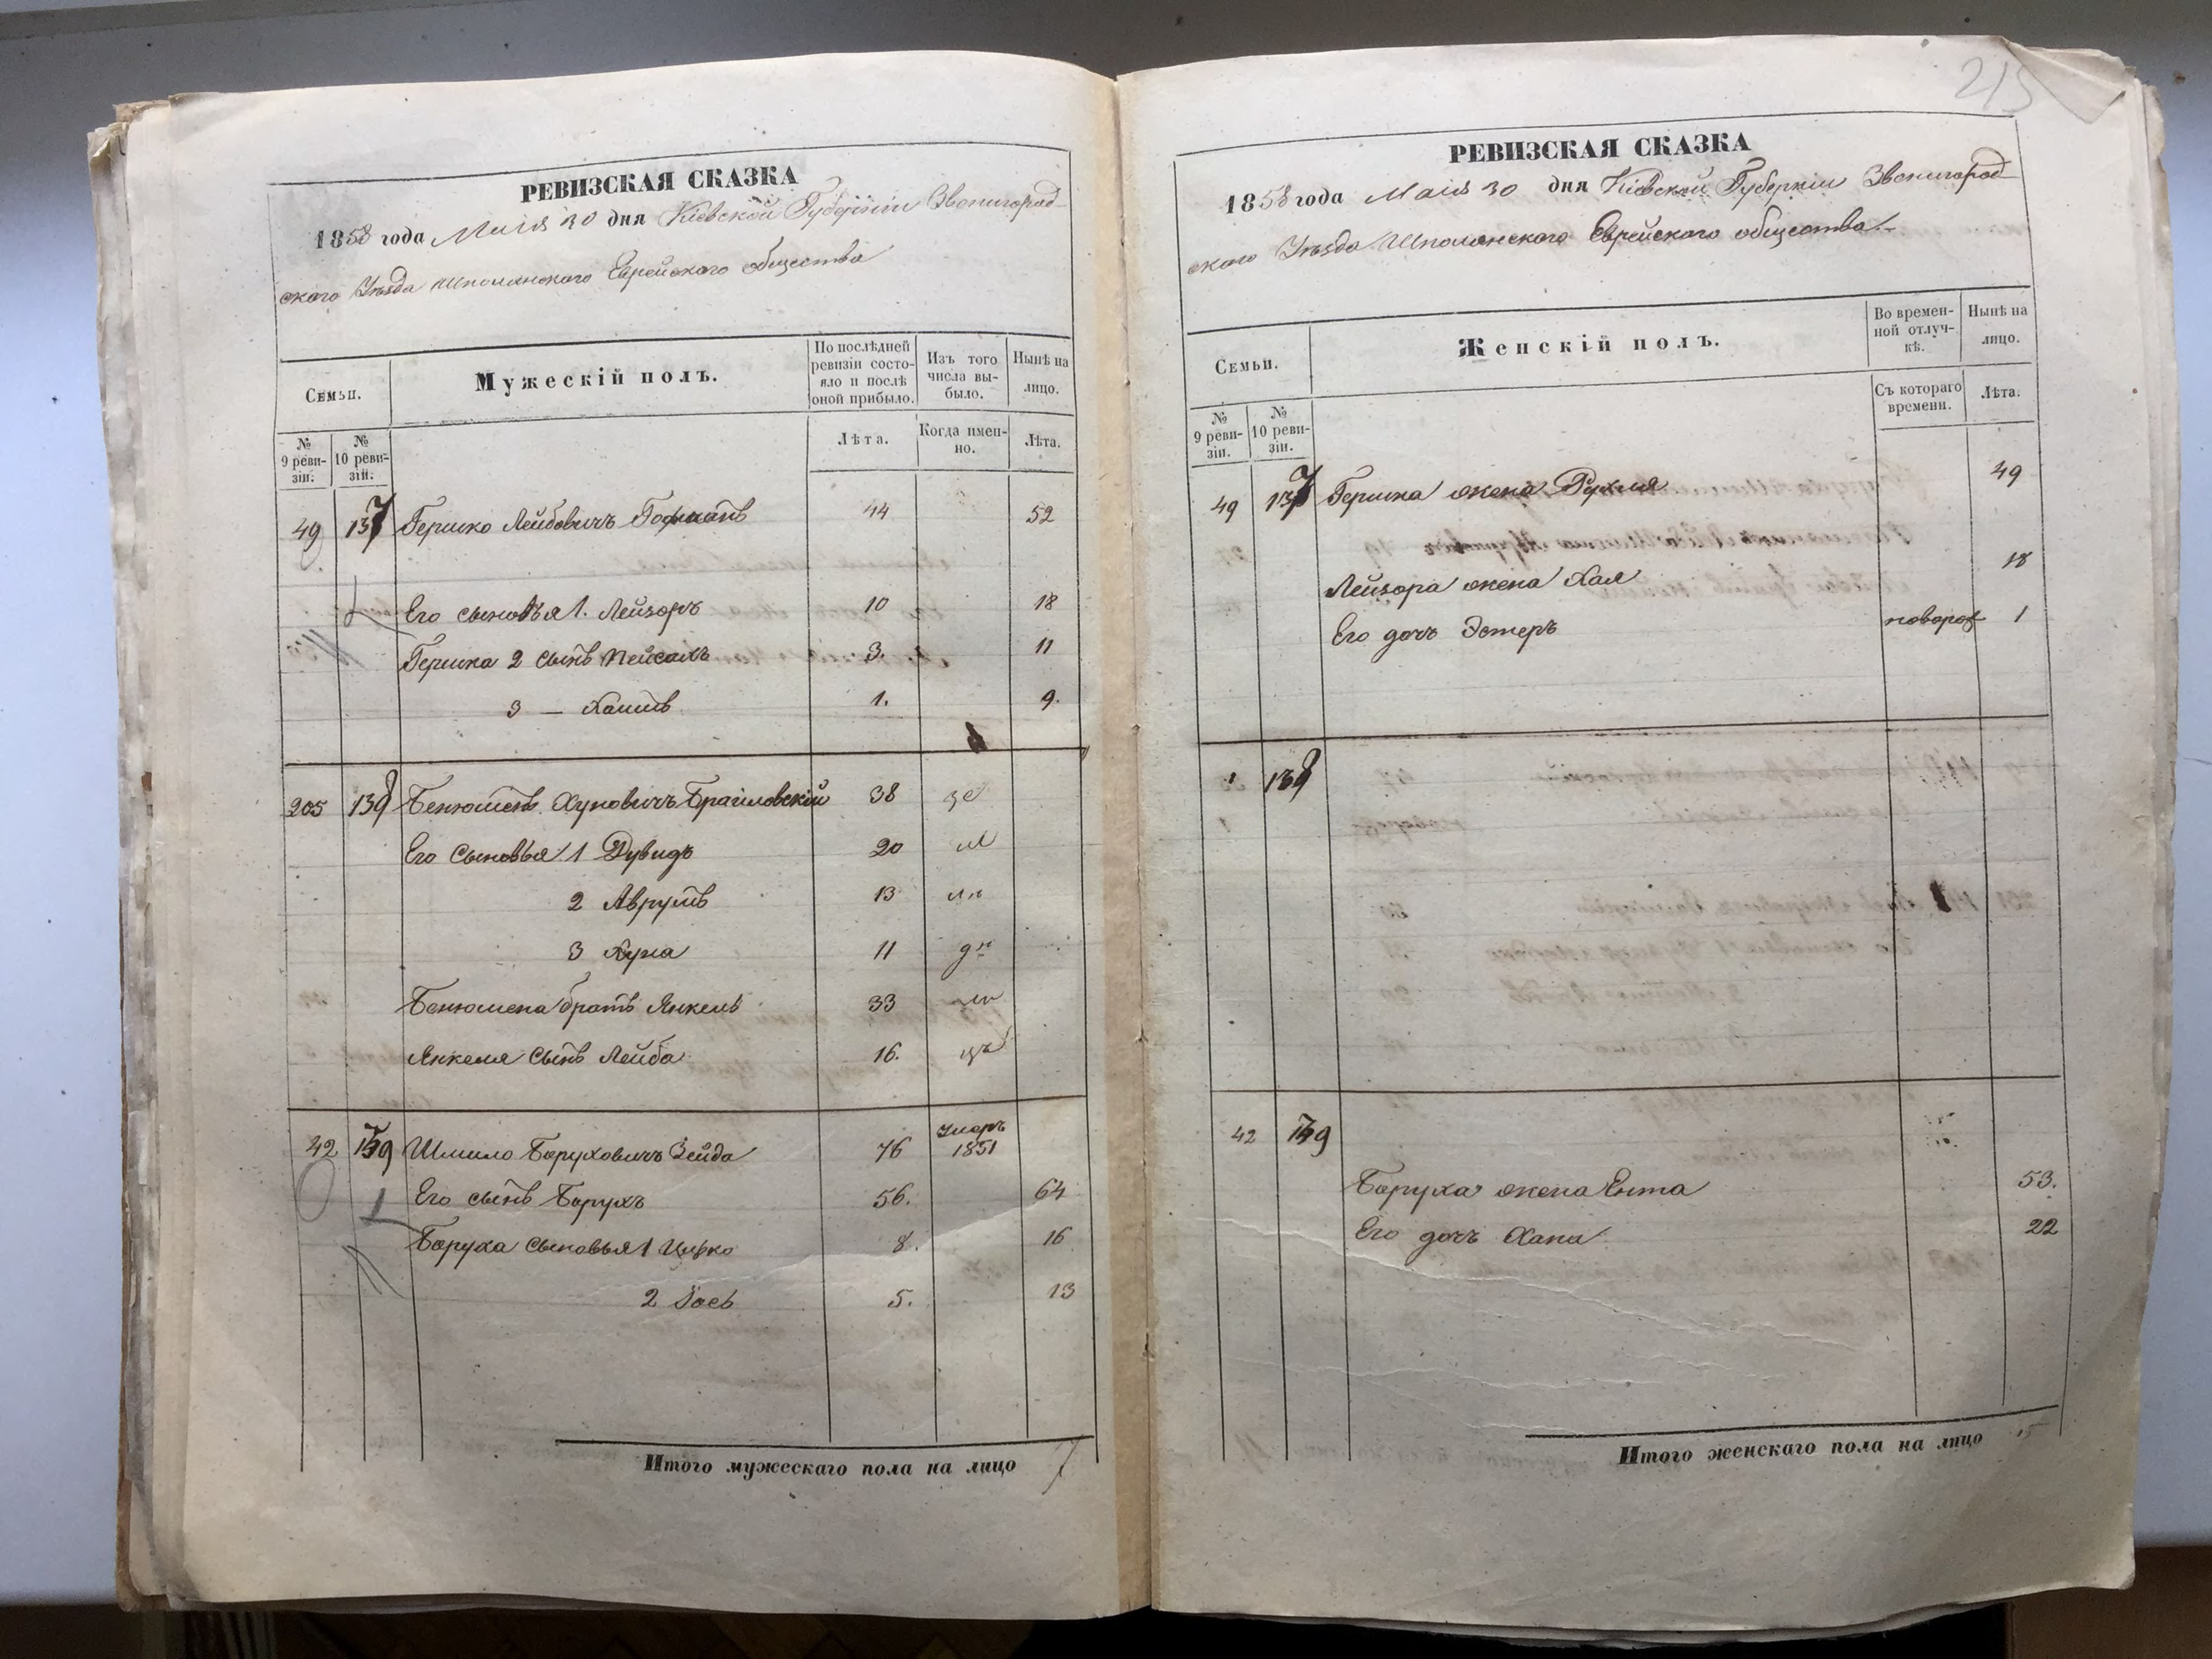 РЕВИЗСКАЯ СКАЗКА
1858 года Маія 30 дня Кіевской Губерніи Звенигород-
скаго Уѣзда Шполянскаго Еврейскаго общества
Семьи.
Мужескій полъ.
По послѣдней ревизіи состояло и послѣ оной прибыло.
Изъ того числа выбыло.
Нынѣ на лицо.
№ 9 ревизіи.
№ 10 ревизіи.
Лѣта.
Когда именно.
Лѣта.
49 137 Гершко Лейбовичъ 44 52
Его сыновья 1. Лейзоръ 10 18
Гершка 2 сынъ Пейсахъ 3. 11
3 — Хаимъ 1. 9.
205 138 Бенюменъ Хуновичъ Браиловскій 38
Его Сыновья 1 Дувидъ 20
2 Аврумъ 13
3 Хуна 11
Бенюмена братъ Янкель 33
Янкеля Сынъ Лейба 16.
42 139 Шмило Боруховичъ Зейда 76 Умеръ 1851
Его сынъ Борухъ 56. 64
Боруха Сыновья 1 8. 16
2 Іосъ 5. 13
Итого мужескаго пола на лицо 7
215
РЕВИЗСКАЯ СКАЗКА
1858 года Маія 30 дня Кіевской Губерніи Звенигород-
скаго Уѣзда Шполянскаго Еврейскаго общества.
Семьи.
Женскій полъ.
Во временной отлучкѣ.
Нынѣ на лицо.
№ 9 ревизіи.
№ 10 ревизіи.
Съ котораго времени.
Лѣта.
49 137 Гершка жена Рухля 49
Лейзора жена Хая 18
Его дочь Эстеръ новорож 1
138
42 139
Боруха жена Ента 53.
Его дочь Хана 22
Итого женскаго пола на лицо 5